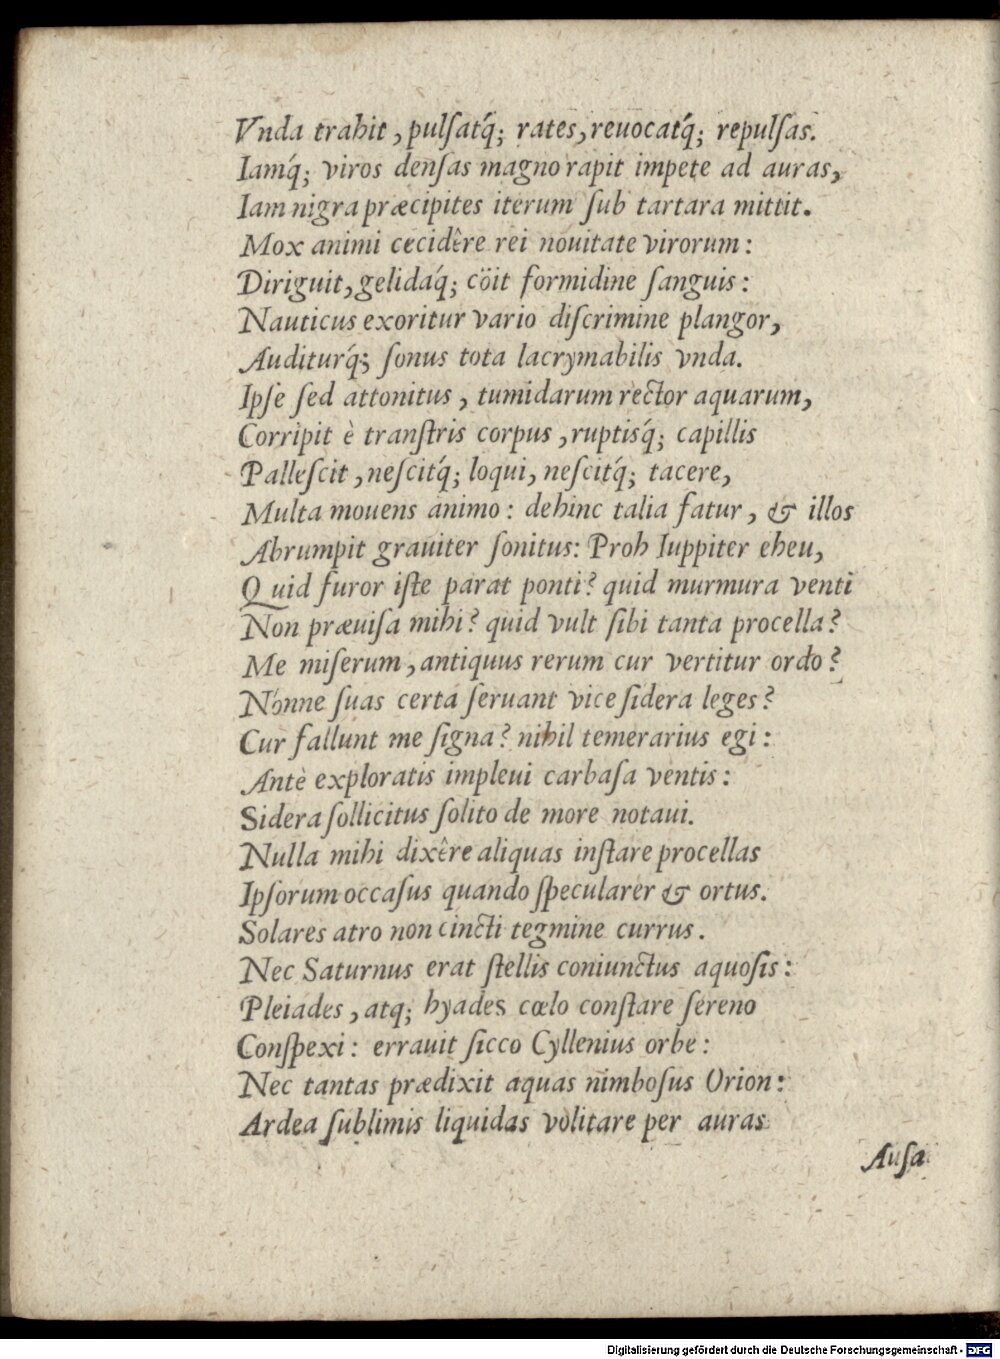 Vnda trahit, pulſatq́; rates, reuocatq́; repulſas.
Iamq́; viros denſas magno rapit impete ad auras,
Iam nigra præcipites iterum ſub tartara mittit.
Mox animi cecidêre rei nouitate virorum:
Diriguit, gelidaq́; cöit formidine ſanguis:
Nauticus exoritur vario diſcrimine plangor,
Auditurq́; ſonus tota lacrymabilis vnda.
Ipſe ſed attonitus, tumidarum rector aquarum,
Corripit è tranſtris corpus, ruptisq́; capillis
Palleſcit, neſcitq́; loqui, neſcitq́; tacere,
Multa mouens animo: dehinc talia fatur, & illos
Abrumpit grauiter ſonitus: Proh Iuppiter eheu,
Quid furor iſte parat ponti? quid murmura venti
Non præuiſa mihi? quid vult ſibi tanta procella?
Me miſerum, antiquus rerum cur vertitur ordo?
Nónne ſuas certa ſeruant vice ſidera leges?
Cur fallunt me ſigna? nihil temerarius egi:
Antè exploratis impleui carbaſa ventis:
Sidera ſollicitus ſolito de more notaui.
Nulla mihi dixêre aliquas inſtare procellas
Ipſorum occaſus quando ſpecularer & ortus.
Solares atro non cincti tegmine currus.
Nec Saturnus erat ſtellis coniunctus aquoſis:
Pleiades, atq; hyades cœlo conſtare ſereno
Conſpexi: errauit ſicco Cyllenius orbe:
Nec tantas prædixit aquas nimboſus Orion:
Ardea ſublimis liquidas volitare per auras
Auſa
Digitalisierung gefördert durch die Deutsche Forschungsgemeinschaft - DFG